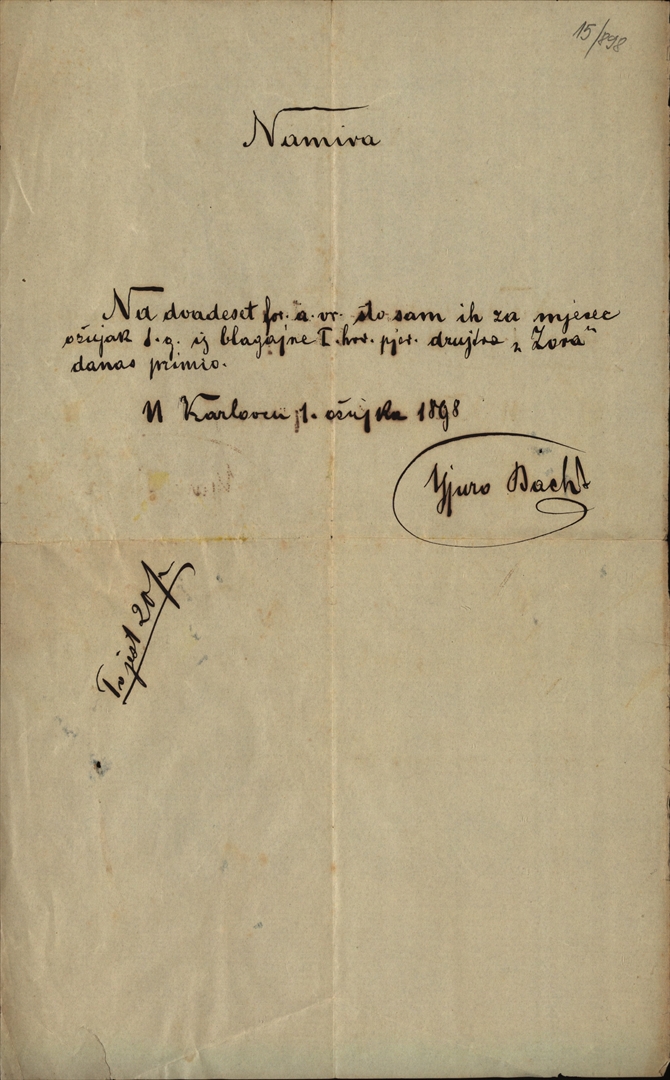 15/898
Namira
Na dvadeset for. a. vr. što sam ih za mjesec
ožujak t. g. iz blagajne I. hrv. pjev. družtva „Zora“
danas primio.
U Karlovcu 1. ožujka 1898
Gjuro Bach
To jest 20 f